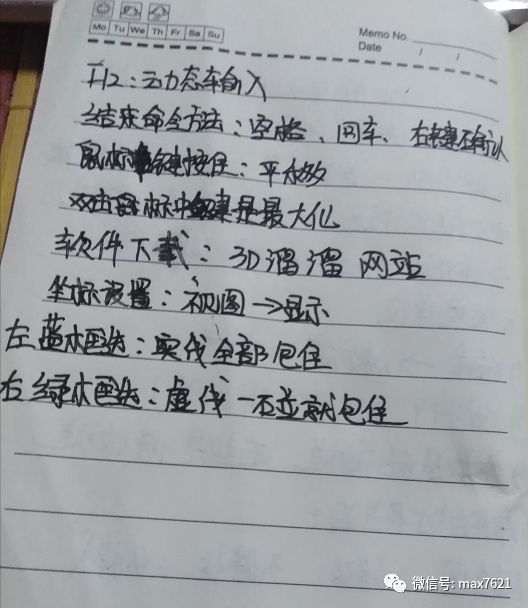 Memo No.
Mo Tu We Th Fr Sa Su
Date / /
F12：动态车俞入
结束命令方法：空格、回车、右键确认
鼠标中键按住：平移
双击鼠标中键是最大化
软件下载：3D溜溜网站
坐标设置：视图→显示
左蓝木匡选：实线全部包住
右绿木匡选：虚线一石並就包住
微信号: max7621